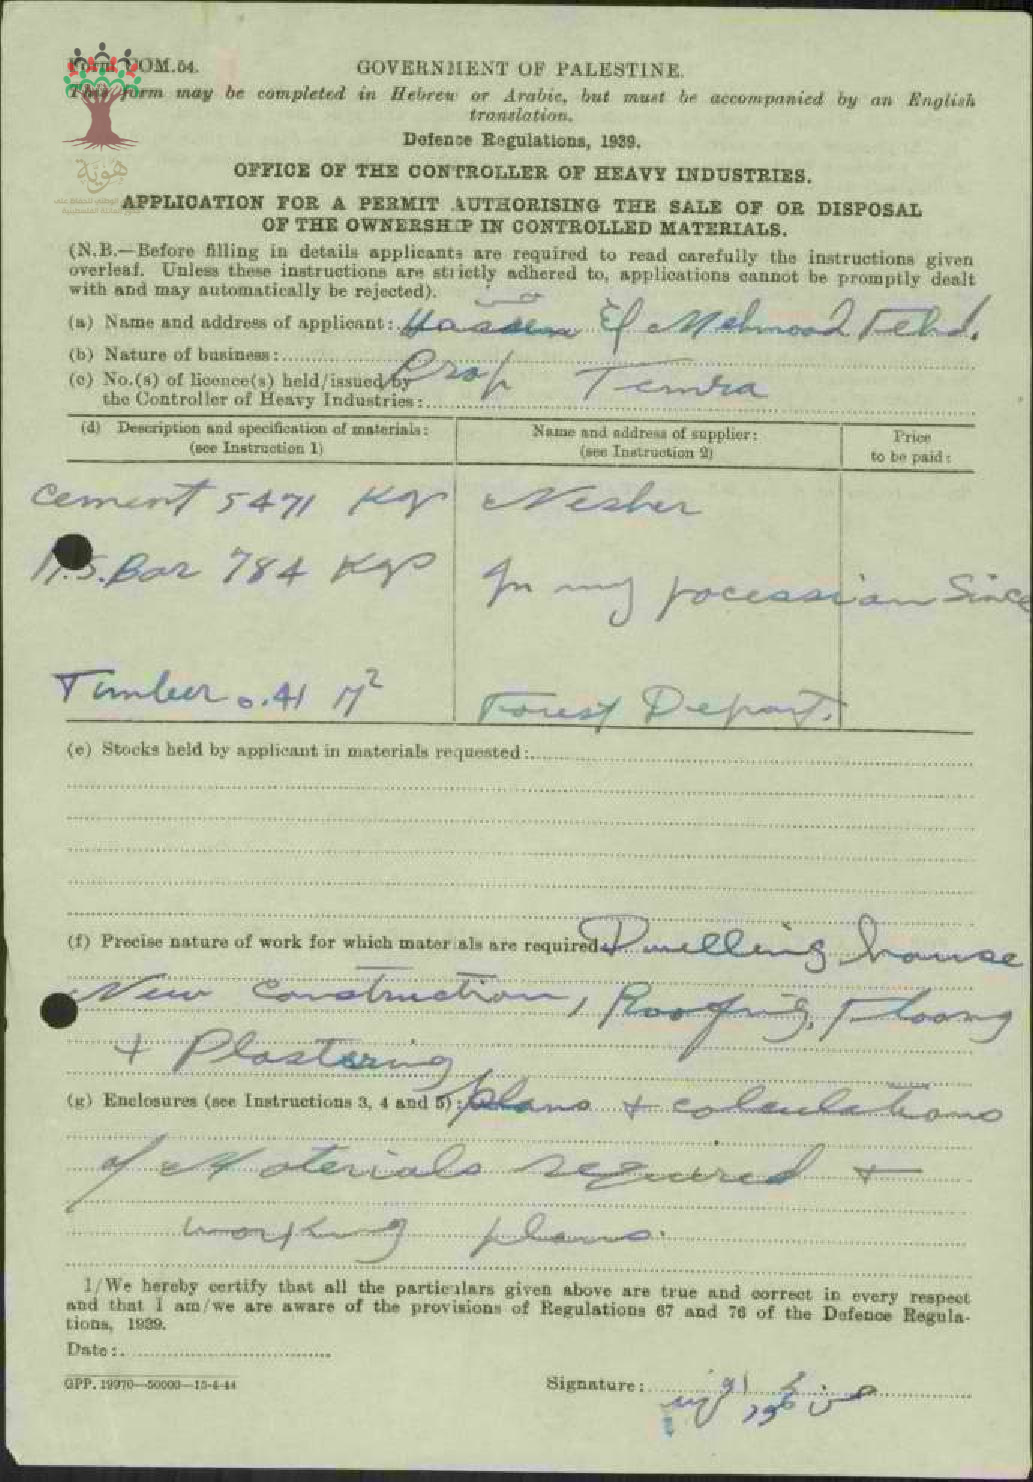 Form COM.54.
GOVERNMENT OF PALESTINE.
This form may be completed in Hebrew or Arabic, but must be accompanied by an English
translation.
Defence Regulations, 1939.
هوية
OFFICE OF THE CONTROLLER OF HEAVY INDUSTRIES.
APPLICATION FOR A PERMIT AUTHORISING THE SALE OF OR DISPOSAL
OF THE OWNERSHIP IN CONTROLLED MATERIALS.
(N.B.—Before filling in details applicants are required to read carefully the instructions given
overleaf. Unless these instructions are strictly adhered to, applications cannot be promptly dealt
with and may automatically be rejected).
(a) Name and address of applicant: Hassan El Mehmood Fehd.
(b) Nature of business: Prop Temra
(c) No.(s) of licence(s) held/issued by
the Controller of Heavy Industries:
(d) Description and specification of materials:
(see Instruction 1)
Name and address of supplier:
(see Instruction 2)
Price
to be paid:
Cement 5471 Kgs Nesher
M.S. Bar 784 Kgs In my pocession Since
Timber 0.41 M2 Forest Depart.
(e) Stocks held by applicant in materials requested:
(f) Precise nature of work for which materials are required: Dwelling house
New Construction, Roofing, Floong
+ Plastering
(g) Enclosures (see Instructions 3, 4 and 5): plans + calculations
of Materials required +
working plans.
I/We hereby certify that all the particulars given above are true and correct in every respect
and that I am/we are aware of the provisions of Regulations 67 and 76 of the Defence Regula-
tions, 1939.
Date:
GPP. 19970—50000—15-4-44
Signature: حسن محمود